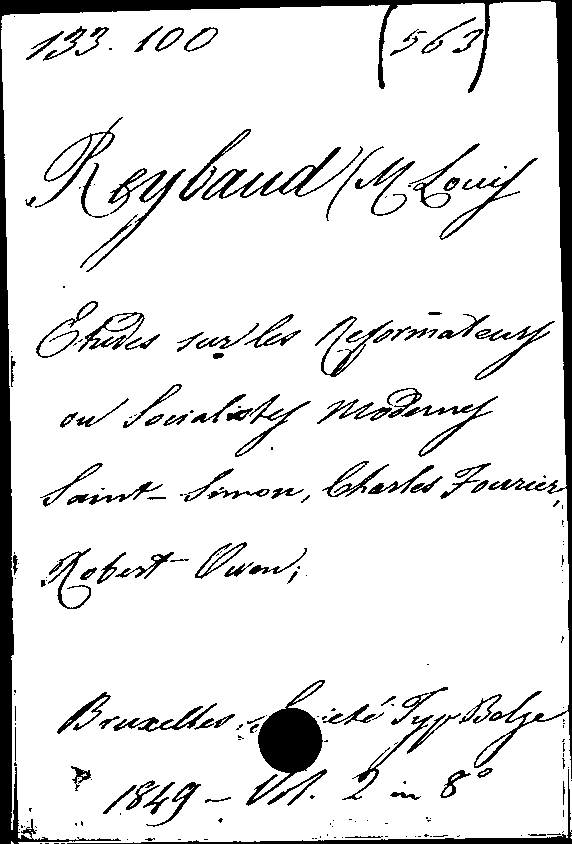 133.100 (563)
Reybaud (M Louis
Etudes sur les Reformateurs
ou Socialistes modernes
Saint-Simon, Charles Fourier,
Robert Owen;
Bruxelles, Société Typ Belge
1849 - Vol. 2 in 8°